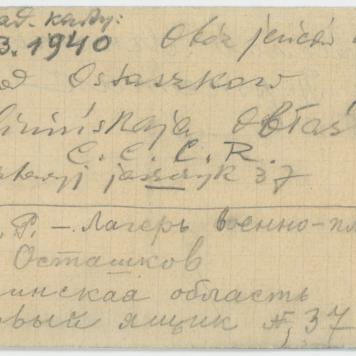 ad. karty:
3.1940 Obóz jeńców
od Ostaszkow
linińskaja Obłaś
C.C.C.R.
towyj jaszczyk 37
.Р. – Лагерь военно-пл
Осташков
инская область
овый ящик №, 37